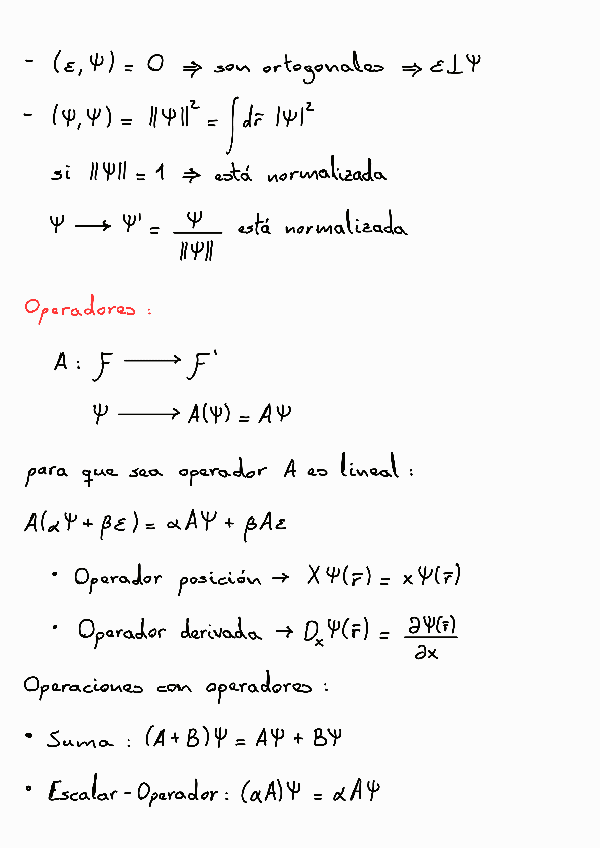 - (ε, Ψ) = 0 ⇒ son ortogonales ⇒ ε⊥Ψ
- (Ψ, Ψ) = ||Ψ||² = ∫ dr̄ |Ψ|²
si ||Ψ|| = 1 ⇒ está normalizada
Ψ ⟶ Ψ' = Ψ / ||Ψ|| está normalizada
Operadores :
A : F ⟶ F'
Ψ ⟶ A(Ψ) = AΨ
para que sea operador A es lineal :
A(αΨ + βε) = αAΨ + βAε
• Operador posición → XΨ(r̄) = xΨ(r̄)
• Operador derivada → DₓΨ(r̄) = ∂Ψ(r̄) / ∂x
Operaciones con operadores :
• Suma : (A + B)Ψ = AΨ + BΨ
• Escalar - Operador : (αA)Ψ = αAΨ